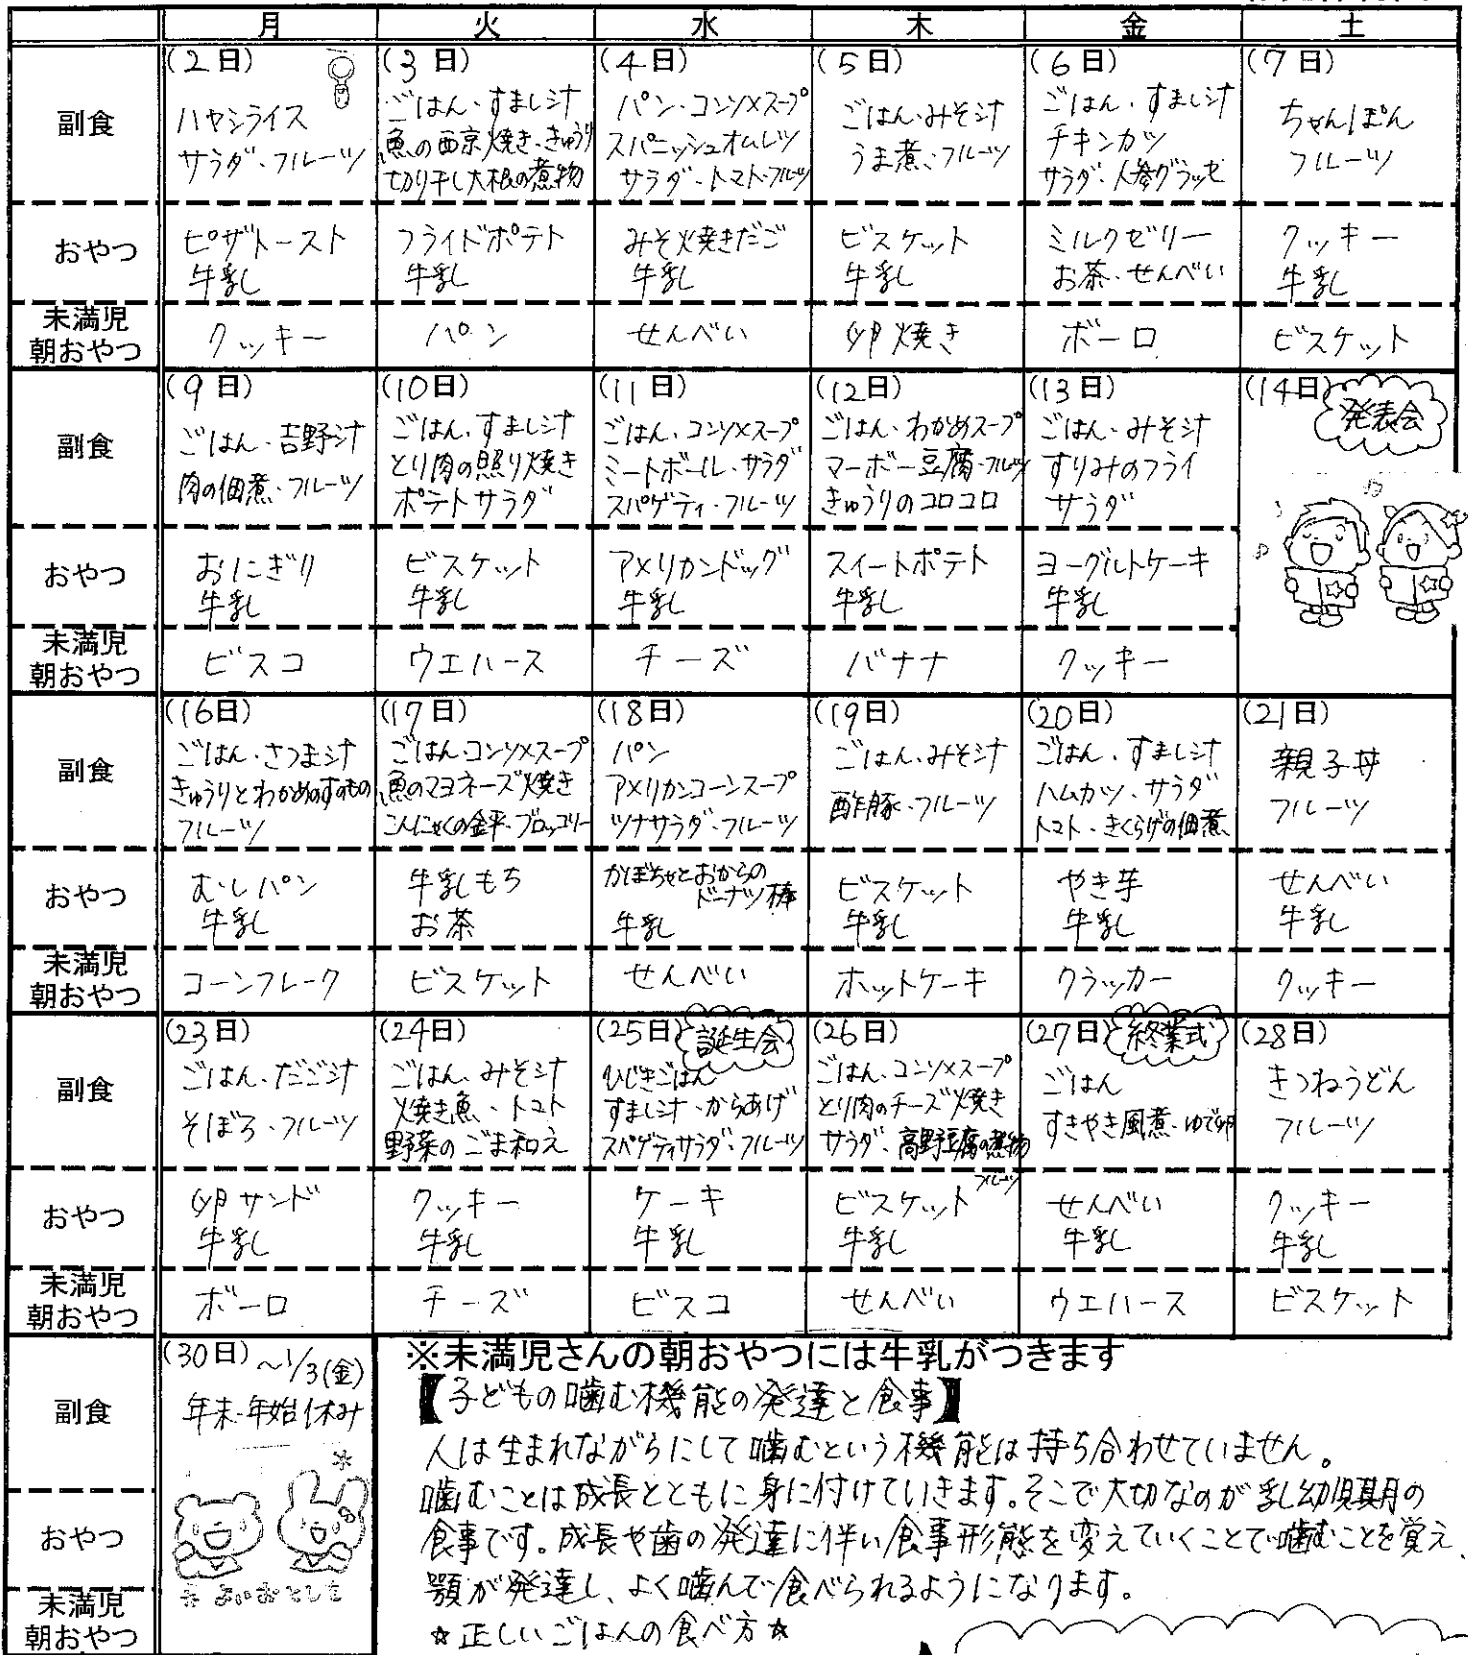 月 火 水 木 金 土
副食
(2日)
ハヤシライス
サラダ・フルーツ
(3日)
ごはん・すまし汁
魚の西京焼き・きゅうり
切り干し大根の煮物
(4日)
パン・コンソメスープ
スパニッシュオムレツ
サラダ・トマト・フルーツ
(5日)
ごはん・みそ汁
うま煮・フルーツ
(6日)
ごはん・すまし汁
チキンカツ
サラダ・人参グラッセ
(7日)
ちゃんぽん
フルーツ
おやつ
ピザトースト
牛乳
フライドポテト
牛乳
みそ焼きだご
牛乳
ビスケット
牛乳
ミルクゼリー
お茶・せんべい
クッキー
牛乳
未満児
朝おやつ
クッキー
パン
せんべい
卵焼き
ボーロ
ビスケット
副食
(9日)
ごはん・吉野汁
肉の佃煮・フルーツ
(10日)
ごはん・すまし汁
とり肉の照り焼き
ポテトサラダ
(11日)
ごはん・コンソメスープ
ミートボール・サラダ
スパゲティ・フルーツ
(12日)
ごはん・わかめスープ
マーボー豆腐・フルーツ
きゅうりのコロコロ
(13日)
ごはん・みそ汁
すりみのフライ
サラダ
(14日)
発表会
おやつ
おにぎり
牛乳
ビスケット
牛乳
アメリカンドッグ
牛乳
スイートポテト
牛乳
ヨーグルトケーキ
牛乳
未満児
朝おやつ
ビスコ
ウエハース
チーズ
バナナ
クッキー
副食
(16日)
ごはん・さつま汁
きゅうりとわかめのすのもの
フルーツ
(17日)
ごはん・コンソメスープ
魚のマヨネーズ焼き
こんにゃくの金平・ブロッコリー
(18日)
パン
アメリカンコーンスープ
ツナサラダ・フルーツ
(19日)
ごはん・みそ汁
酢豚・フルーツ
(20日)
ごはん・すまし汁
ハムカツ・サラダ
トマト・きくらげの佃煮
(21日)
親子丼
フルーツ
おやつ
むしパン
牛乳
牛乳もち
お茶
かぼちゃとおからの
ドーナツ棒
牛乳
ビスケット
牛乳
やき芋
牛乳
せんべい
牛乳
未満児
朝おやつ
コーンフレーク
ビスケット
せんべい
ホットケーキ
クラッカー
クッキー
副食
(23日)
ごはん・だご汁
そぼろ・フルーツ
(24日)
ごはん・みそ汁
焼き魚・トマト
野菜のごま和え
(25日)
誕生会
ひじきごはん
すまし汁・からあげ
スパゲティサラダ・フルーツ
(26日)
ごはん・コンソメスープ
とり肉のチーズ焼き
サラダ・高野豆腐の煮物
フルーツ
(27日)
終業式
ごはん
すきやき風煮・ゆで卵
(28日)
きつねうどん
フルーツ
おやつ
卵サンド
牛乳
クッキー
牛乳
ケーキ
牛乳
ビスケット
牛乳
せんべい
牛乳
クッキー
牛乳
未満児
朝おやつ
ボーロ
チーズ
ビスコ
せんべい
ウエハース
ビスケット
副食
(30日)～1/3(金)
年末・年始休み
おやつ
よいおとしを
未満児
朝おやつ
※未満児さんの朝おやつには牛乳がつきます
【子どもの噛む機能の発達と食事】
人は生まれながらにして噛むという機能は持ち合わせていません。
噛むことは成長とともに身に付けていきます。そこで大切なのが乳幼児期の
食事です。成長や歯の発達に伴い食事形態を変えていくことで噛むことを覚え、
顎が発達し、よく噛んで食べられるようになります。
☆正しいごはんの食べ方☆